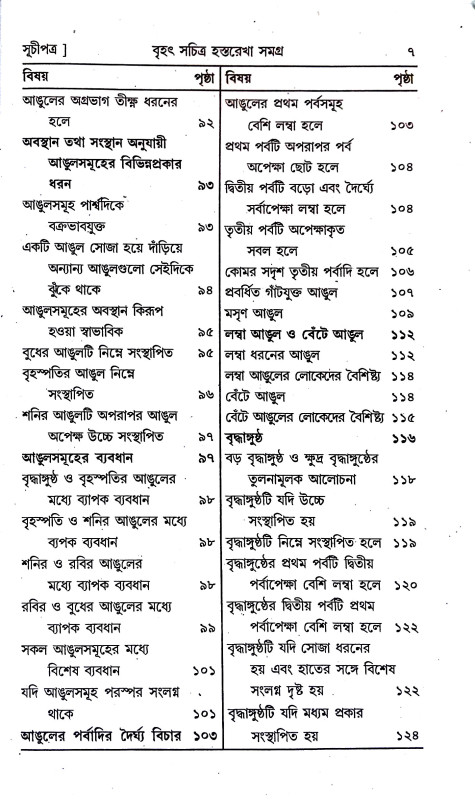 সূচীপত্র ] বৃহৎ সচিত্র হস্তরেখা সমগ্র ৭
বিষয় পৃষ্ঠা
আঙুলের অগ্রভাগ তীক্ষ্ণ ধরনের
হলে ৯২
অবস্থান তথা সংস্থান অনুযায়ী
আঙুলসমূহের বিভিন্নপ্রকার
ধরন ৯৩
আঙুলসমূহ পার্শ্বদিকে
বক্রভাবযুক্ত ৯৩
একটি আঙুল সোজা হয়ে দাঁড়িয়ে
অন্যান্য আঙুলগুলো সেইদিকে
ঝুঁকে থাকে ৯৪
আঙুলসমূহের অবস্থান কিরূপ
হওয়া স্বাভাবিক ৯৫
বুধের আঙুলটি নিম্নে সংস্থাপিত ৯৫
বৃহস্পতির আঙুল নিম্নে
সংস্থাপিত ৯৬
শনির আঙুলটি অপরাপর আঙুল
অপেক্ষ উচ্চে সংস্থাপিত ৯৭
আঙুলসমূহের ব্যবধান ৯৭
বৃদ্ধাঙ্গুষ্ঠ ও বৃহস্পতির আঙুলের
মধ্যে ব্যাপক ব্যবধান ৯৮
বৃহস্পতি ও শনির আঙুলের মধ্যে
ব্যপক ব্যবধান ৯৮
শনির ও রবির আঙুলের
মধ্যে ব্যাপক ব্যবধান ৯৮
রবির ও বুধের আঙুলের মধ্যে
ব্যাপক ব্যবধান ৯৯
সকল আঙুলসমূহের মধ্যে
বিশেষ ব্যবধান ১০১
যদি আঙুলসমূহ পরস্পর সংলগ্ন
থাকে ১০১
আঙুলের পর্বাদির দৈর্ঘ্য বিচার ১০৩
বিষয় পৃষ্ঠা
আঙুলের প্রথম পর্বসমূহ
বেশি লম্বা হলে ১০৩
প্রথম পর্বটি অপরাপর পর্ব
অপেক্ষা ছোট হলে ১০৪
দ্বিতীয় পর্বটি বড়ো এবং দৈর্ঘ্যে
সর্বাপেক্ষা লম্বা হলে ১০৪
তৃতীয় পর্বটি অপেক্ষাকৃত
সবল হলে ১০৫
কোমর সদৃশ তৃতীয় পর্বাদি হলে ১০৬
প্রবর্ধিত গাঁটযুক্ত আঙুল ১০৭
মসৃণ আঙুল ১০৯
লম্বা আঙুল ও বেঁটে আঙুল ১১২
লম্বা ধরনের আঙুল ১১২
লম্বা আঙুলের লোকেদের বৈশিষ্ট্য ১১৪
বেঁটে আঙুল ১১৪
বেঁটে আঙুলের লোকেদের বৈশিষ্ট্য ১১৫
বৃদ্ধাঙ্গুষ্ঠ ১১৬
বড় বৃদ্ধাঙ্গুষ্ঠ ও ক্ষুদ্র বৃদ্ধাঙ্গুষ্ঠের
তুলনামূলক আলোচনা ১১৮
বৃদ্ধাঙ্গুষ্ঠটি যদি উচ্চে
সংস্থাপিত হয় ১১৯
বৃদ্ধাঙ্গুষ্ঠটি নিম্নে সংস্থাপিত হলে ১১৯
বৃদ্ধাঙ্গুষ্ঠের প্রথম পর্বটি দ্বিতীয়
পর্বাপেক্ষা বেশি লম্বা হলে ১২০
বৃদ্ধাঙ্গুষ্ঠের দ্বিতীয় পর্বটি প্রথম
পর্বাপেক্ষা বেশি লম্বা হলে ১২২
বৃদ্ধাঙ্গুষ্ঠটি যদি সোজা ধরনের
হয় এবং হাতের সঙ্গে বিশেষ
সংলগ্ন দৃষ্ট হয় ১২২
বৃদ্ধাঙ্গুষ্ঠটি যদি মধ্যম প্রকার
সংস্থাপিত হয় ১২৪